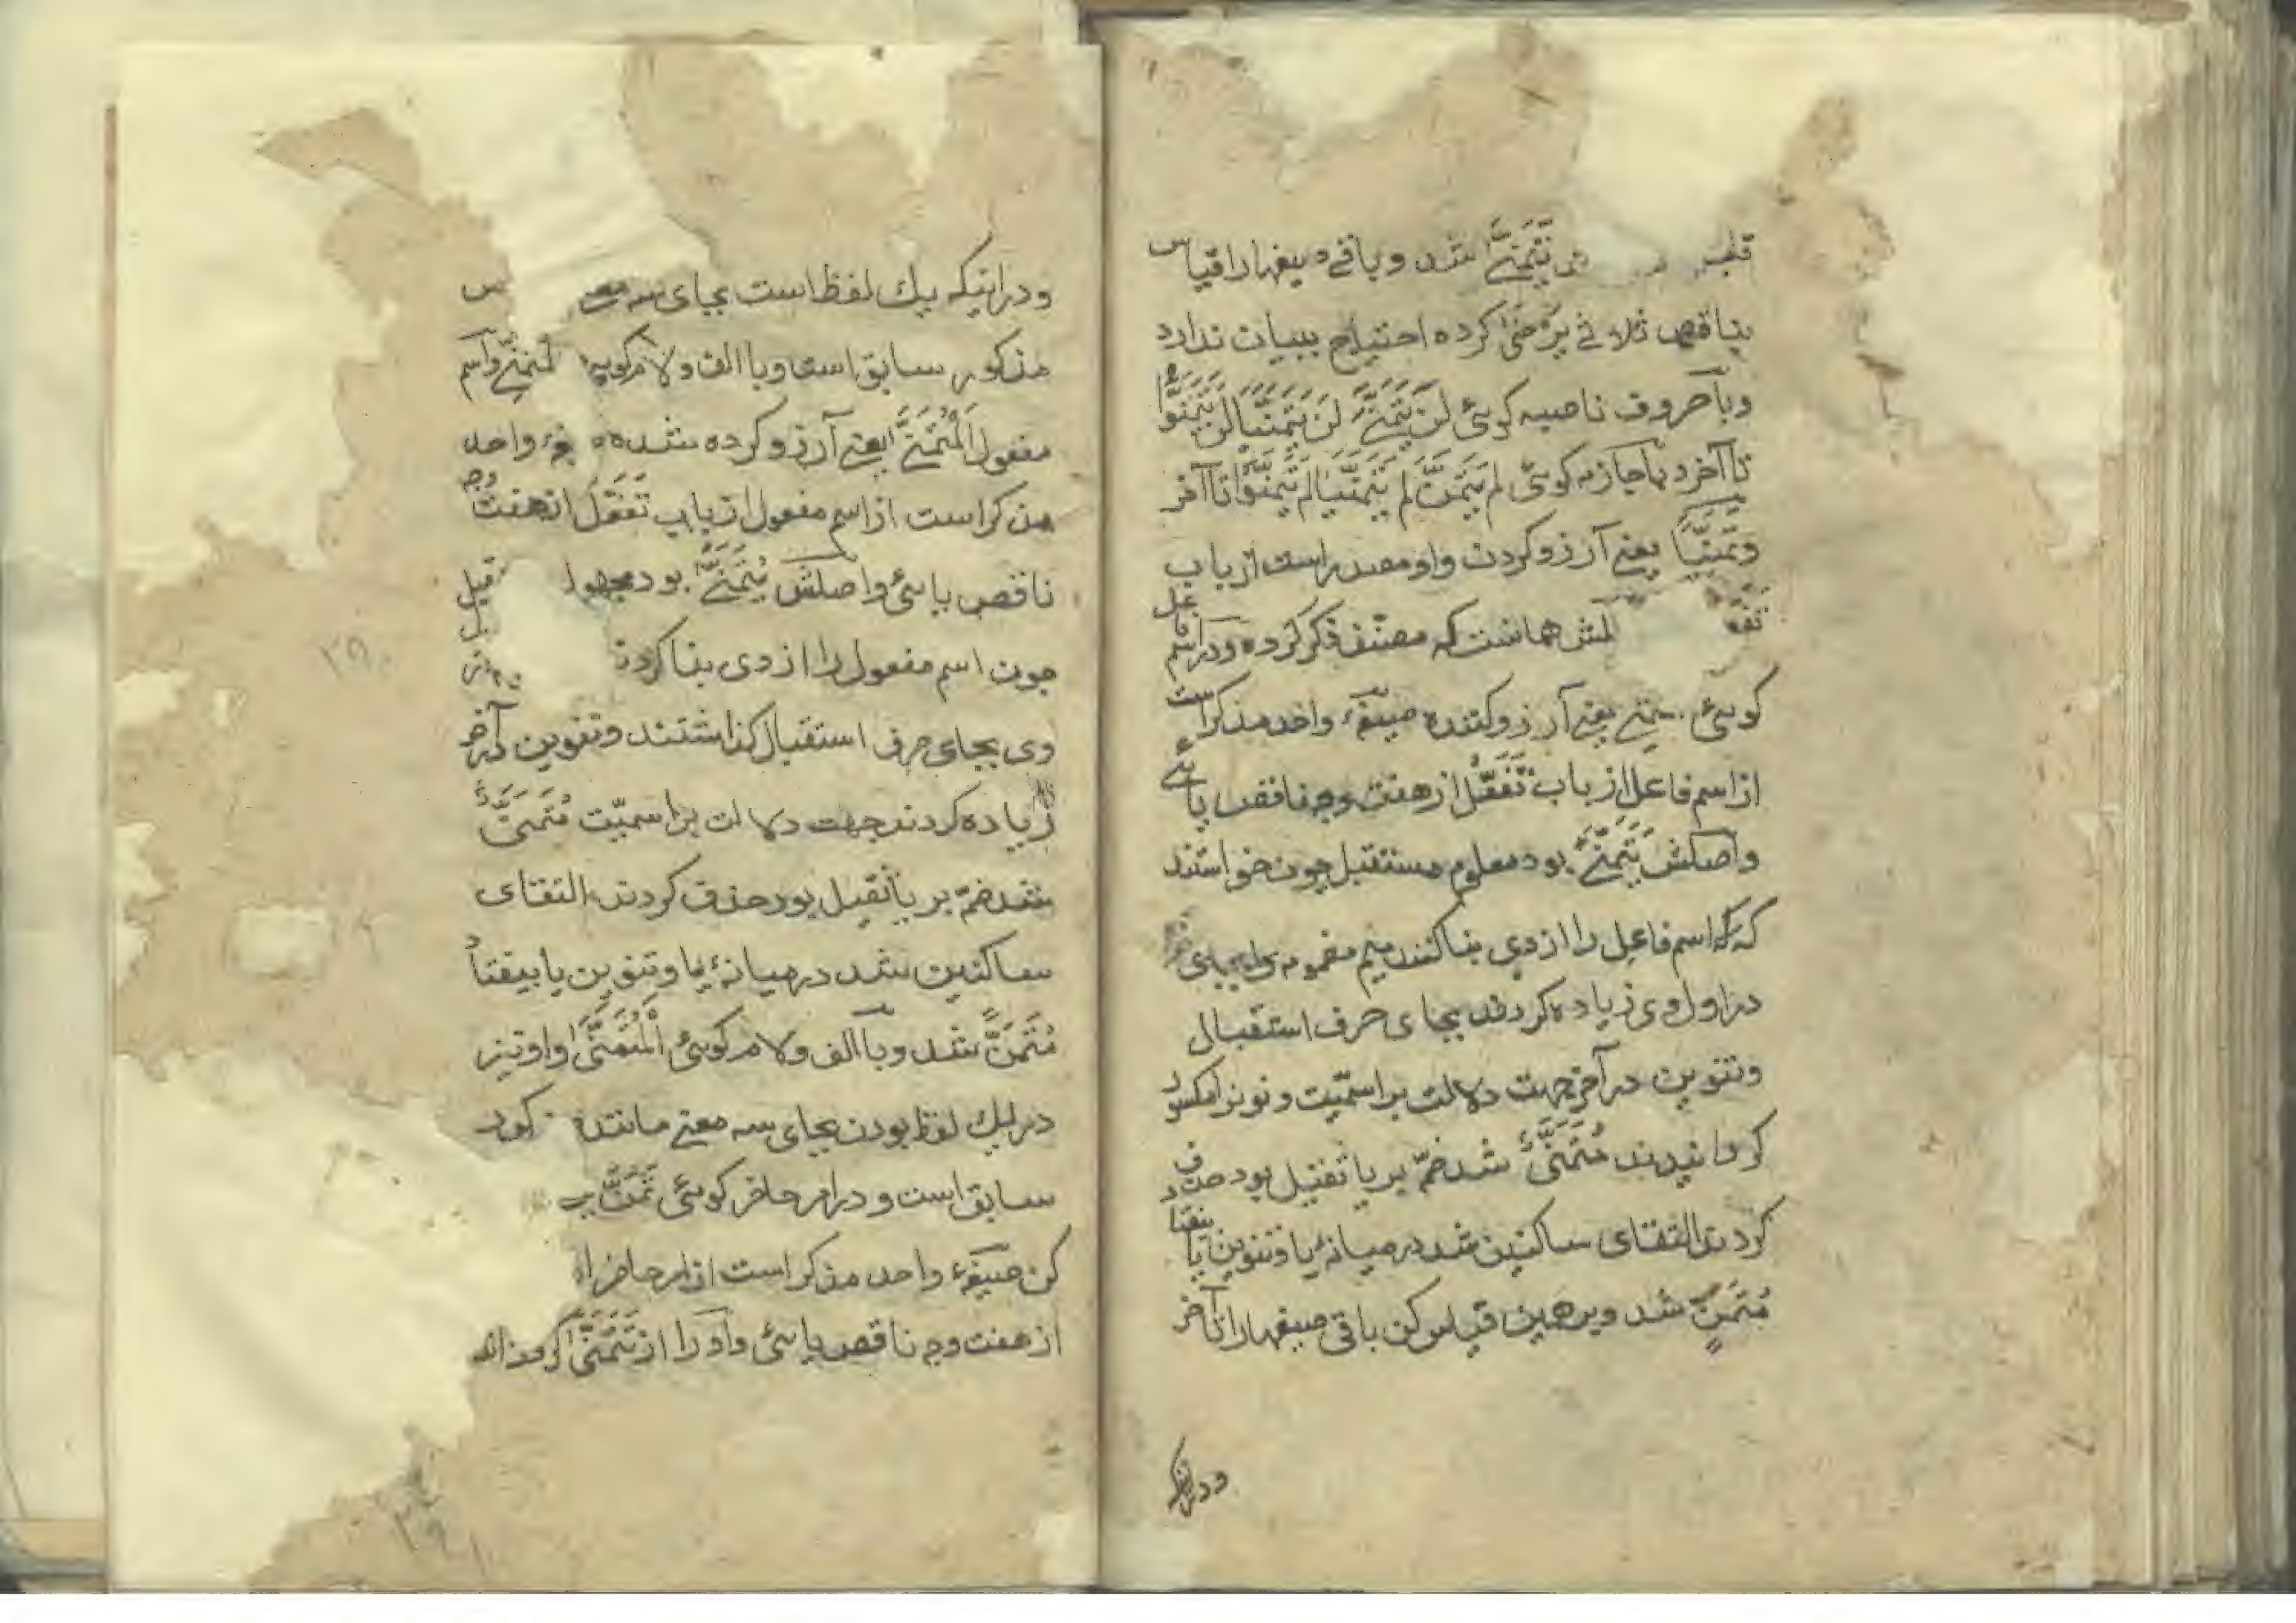 قلب یَتَمَنّٰی شد و باقی صیغها را قیاس
بناقص ثلاثی یَرْضیٰ کرده احتیاج ببیان ندارد
و با حروف ناصبه کوئی لَنْ یَتَمَنّیٰ لَنْ یَتَمَنَّیَا لَنْ یَتَمَنَّوْا
تا آخر و با جازمه کوئی لم یَتَمَنَّ لم یَتَمَنَّیَا لم یَتَمَنَّوْا تا آخر
و تَمَنِّیًا یعنی آرزو کردن و او مصدر است از باب
تفعل همانست که مصنّف ذکر کرده و در اسم فاعل
کوئی یعنی آرزو کننده صیغهٔ واحد مذکر است
از اسم فاعل از باب تَفَعُّل از هفت وجه ناقص یائی
و اصلش یَتَمَنّیٰ بود معلوم مستقبل چون خواستند
که اسم فاعل را از وی بنا کنند میم مضمومه
در اول وی زیاده کردند بجای حرف استقبال
و تنوین در آخر جهت دلالت بر اسمیّت و نونرا مکسور
کردانیدند مُتَمَنِّیٌ شد ضمّ بر یا ثقیل بود حذف
کردند التقای ساکنین شد در میانهٔ یا و تنوین یا بیفتاد
مُتَمَنٍّ شد و برهمین قیاس کن باقی صیغهارا تا آخر
ودرانیکه
ودرانیکه یك لفظ است بجای سه
مذکور سابق است و با الف و لام کوئی المتمنی و اسم
مفعول اَلْمُتَمَنّیٰ یعنی آرزو کرده شده واحد
مذکر است از اسم مفعول از باب تَفَعُّل از هفت وجه
ناقص یائی و اصلش یُتَمَنّیٰ بود مجهول
چون اسم مفعول را از وی بنا کردند
وی بجای حرف استقبال کذاشتند و تنوین در آخر
زیاده کردند جهت دلالت بر اسمیّت مُتَمَنَّیٌ
شد ضمّ بر یا ثقیل بود حذف کردند التقای
ساکنین شد در میانهٔ یا و تنوین یا بیفتاد
مُتَمَنًّ شد و با الف و لام کوئی اَلْمُتَمَنّیٰ و او نیز
در یك لفظ بودن بجای سه معنی مانند
سابق است و در امر حاضر کوئی تَمَنَّ
کن صیغهٔ واحد مذکر است از امر حاضر
از هفت وجه ناقص یائی و او را از تَتَمَنّیٰ کرفته‌اند
۲۹۱